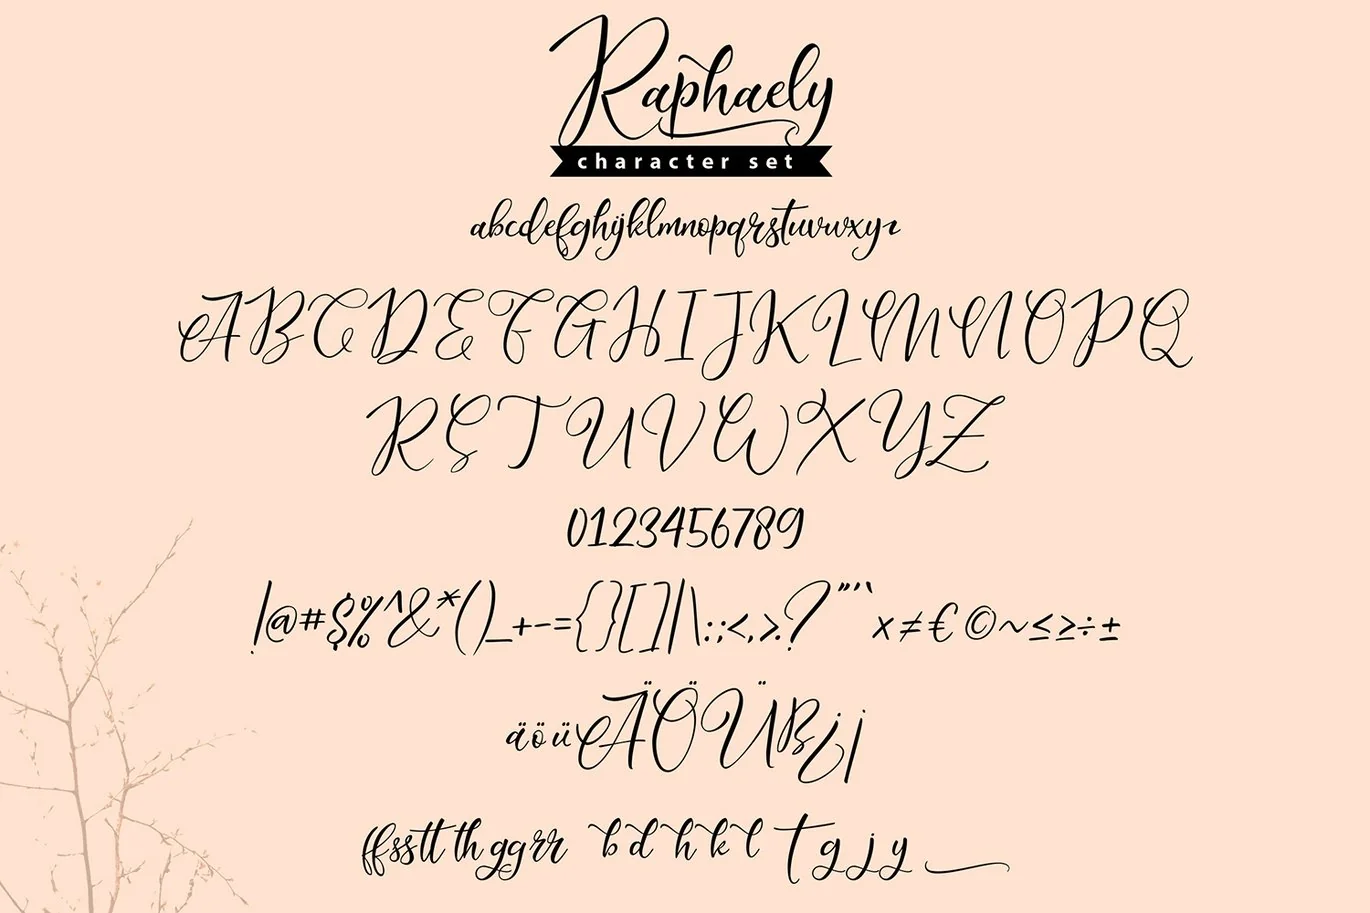 Raphaely
character set
abcdefghijklmnopqrstuvwxyz
ABCDEFGHIJKLMNOPQ
RSTUVWXYZ
0123456789
!@#$%^&*()_+-={}[]|\:;<,>.?"'` x≠€©~≤≥÷±
äöüÄÖÜß¿¡
ffssttthggrr bdhkltgjy_